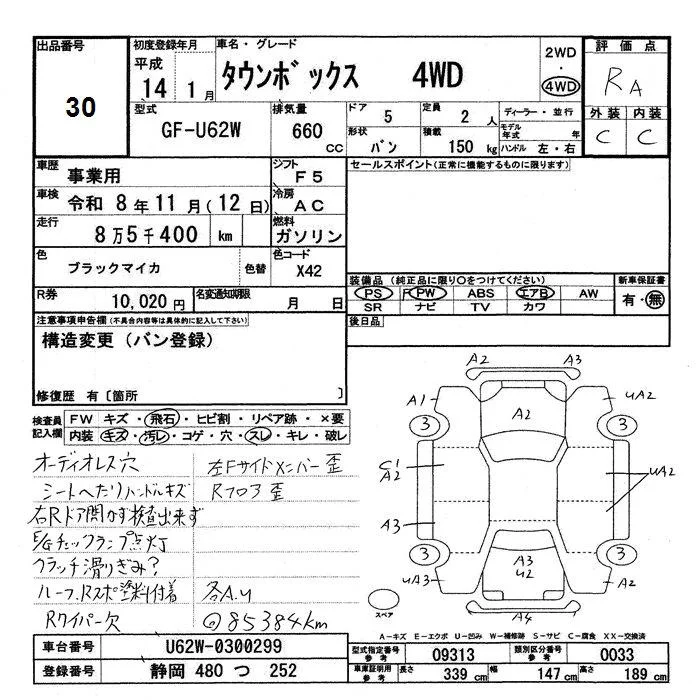 出品番号 初度登録年月 車名・グレード 2WD・4WD 評価点
30 平成 14 1月 タウンボックス 4WD RA
型式 GF-U62W 排気量 660 CC ドア 5 定員 2人 ディーラー・並行 外装 内装
形状 バン 積載 150 kg モデル年式 年 ハンドル 左・右 C C
車歴 事業用 シフト F5 セールスポイント(正常に機能するものに限ります)
車検 令和 8年11月(12日) 冷房 AC
走行 8万5千400 km 燃料 ガソリン
色 ブラックマイカ 色替 色コード X42 装備品 (純正品に限り○をつけてください) 新車保証書
R券 10,020円 名変通知期限 月 日 PS PW ABS エアB AW 有・無
SR ナビ TV カワ
注意事項申告欄(不具合内容等は具体的に記入して下さい) 後日品
構造変更(バン登録)
修復歴 有〔箇所 〕
検査員記入欄 FW キズ・飛石・ヒビ割・リペア跡・×要
内装 キズ・汚レ・コゲ・穴・スレ・キレ・破レ
オーディオレス穴 左Fサイドメンバー歪
シートへたりハンドルキズ Rフロア歪
右Rドア開かず検査出来ず
E/Gチェックランプ点灯
クラッチ滑りぎみ?
ルーフ、Rスポ塗料付着 各A.U
Rワイパー欠 @85384km
A2 A3
A1 UA2
3 A2 3
C1 A2 UA2
A3
3 A3 U2 3
UA3 A2
スペア A4
A-キズ E-エクボ U-凹み W-補修跡 S-サビ C-腐食 XX-交換済
車台番号 U62W-0300299 型式指定番号 参考 09313 類別区分番号 参考 0033
登録番号 静岡 480 つ 252 車庫証明用 参考 長さ 339 cm 幅 147 cm 高さ 189 cm